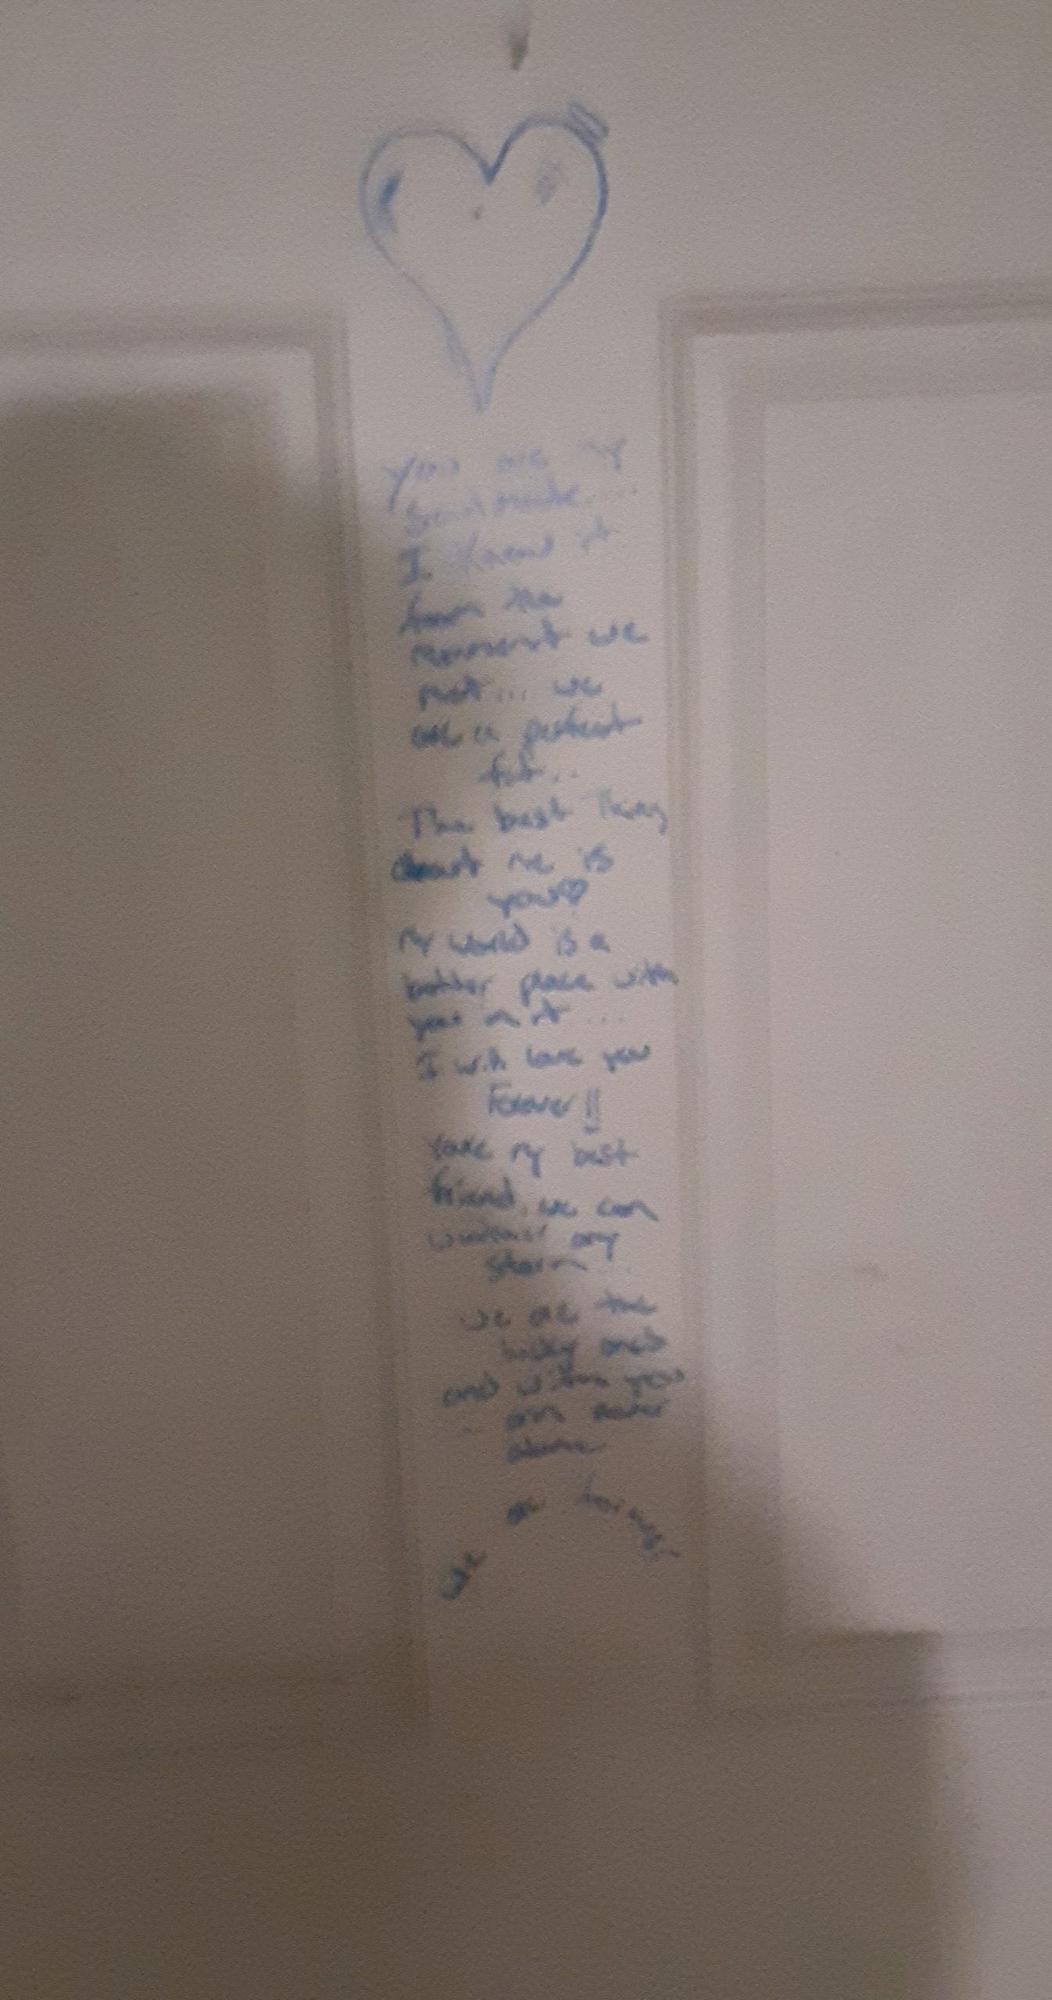 You are my
Soulmate....
I knew it
from the
moment we
met... we
are a perfect
fit..
The best thing
about me is
you♡
My world is a
better place with
you in it ...
I will love you
Forever!!
You're my best
friend, we can
weather any
storm..
we are the
lucky ones
and with you
never
alone
we are forever